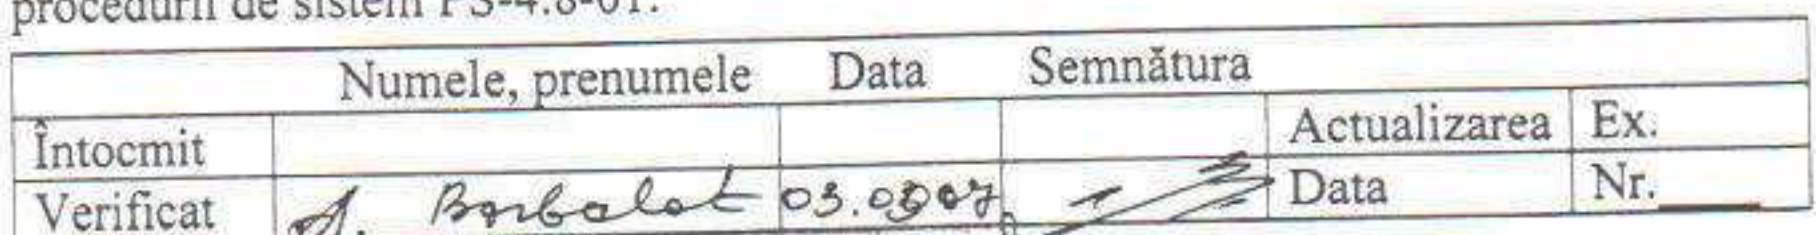 procedurii de sistem PS-4.8-01.
Numele, prenumele Data Semnătura
Întocmit Actualizarea Ex.
Verificat A. Barbalat Data Nr.